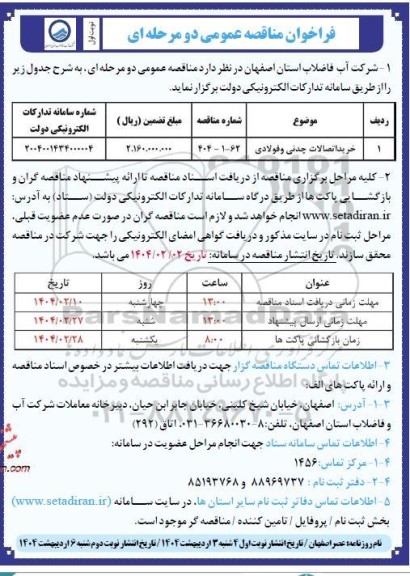 فراخوان مناقصه عمومی دو مرحله ای
نوبت اول
۱- شرکت آب فاضلاب استان اصفهان در نظر دارد مناقصه عمومی دو مرحله ای، به شرح جدول زیر
را از طریق سامانه تدارکات الکترونیکی دولت برگزار نماید.
ردیف موضوع شماره مناقصه مبلغ تضمین (ریال) شماره سامانه تدارکات الکترونیکی دولت
۱ خرید اتصالات چدنی و فولادی ۶۲-۱-۴۰۴ ۲.۱۶۰.۰۰۰.۰۰۰ ۲۰۰۴۰۰۱۴۳۴۰۰۰۰۰۴
۲- کلیه مراحل برگزاری مناقصه از دریافت اسناد مناقصه تا ارائه پیشنهاد مناقصه گران و
بازگشایی پاکت ها از طریق درگاه سامانه تدارکات الکترونیکی دولت (ستاد) به آدرس:
www.setadiran.ir انجام خواهد شد و لازم است مناقصه گران در صورت عدم عضویت قبلی،
مراحل ثبت نام در سایت مذکور و دریافت گواهی امضای الکترونیکی را جهت شرکت در مناقصه
محقق سازند. تاریخ انتشار مناقصه در سامانه: تاریخ ۱۴۰۴/۰۲/۰۲ می باشد.
عنوان ساعت روز تاریخ
مهلت زمانی دریافت اسناد مناقصه ۱۳:۰۰ چهارشنبه ۱۴۰۴/۰۲/۱۰
مهلت زمانی ارسال پیشنهاد ۱۳:۰۰ شنبه ۱۴۰۴/۰۲/۲۷
زمان بازگشائی پاکت ها ۸:۰۰ یکشنبه ۱۴۰۴/۰۲/۲۸
۳- اطلاعات تماس دستگاه مناقصه گزار جهت دریافت اطلاعات بیشتر در خصوص اسناد مناقصه
و ارائه پاکت های الف:
۳-۱- آدرس: اصفهان، خیابان شیخ کلینی، خیابان جابر ابن حیان، دبیرخانه معاملات شرکت آب
و فاضلاب استان اصفهان، تلفن: ۸-۳۶۶۸۰۰۳۰-۰۳۱ (اتاق ۲۹۲)
۴- اطلاعات تماس سامانه ستاد جهت انجام مراحل عضویت در سامانه:
۴-۱- مرکز تماس: ۱۴۵۶
۴-۲- دفتر ثبت نام: ۸۸۹۶۹۷۳۷ و ۸۵۱۹۳۷۶۸
۵- اطلاعات تماس دفاتر ثبت نام سایر استان ها، در سایت سامانه (www.setadiran.ir)
بخش ثبت نام / پروفایل / تامین کننده / مناقصه گر موجود است.
نام روزنامه: عصر اصفهان / تاریخ انتشار نوبت اول ۴ شنبه ۳ اردیبهشت ۱۴۰۴ / تاریخ انتشار نوبت دوم شنبه ۶ اردیبهشت ۱۴۰۴